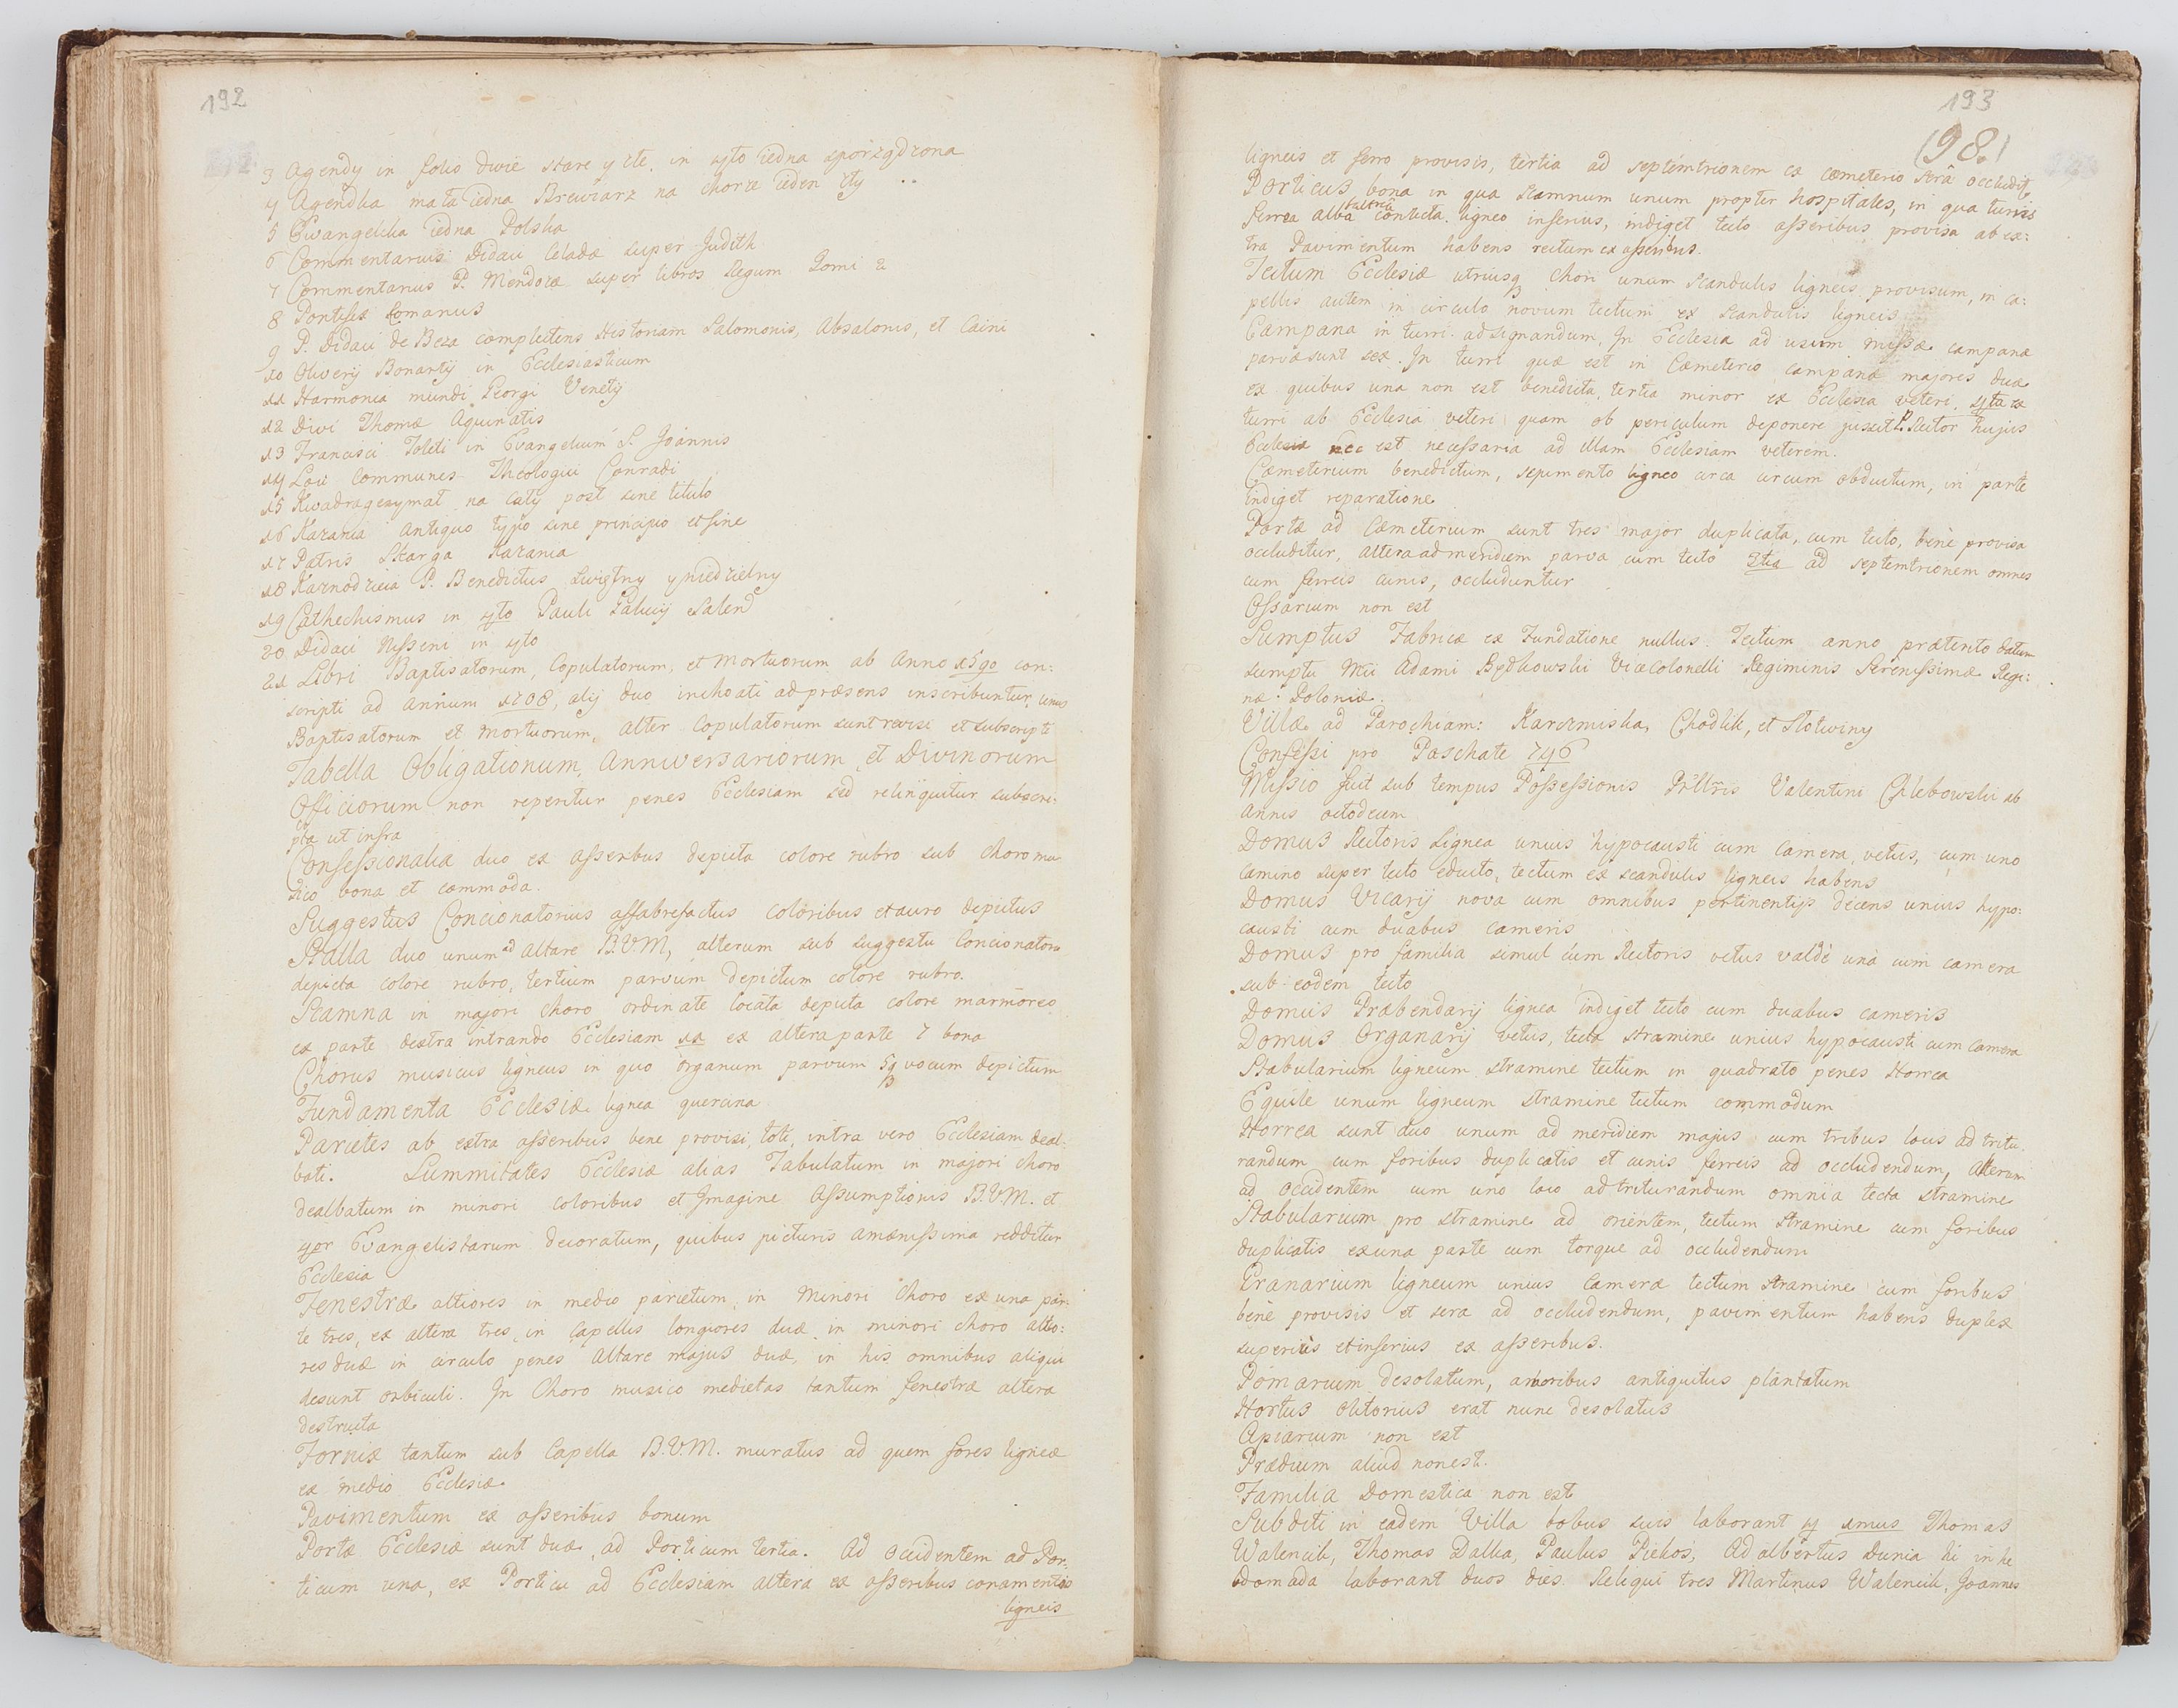 192
3 Agendy in folio dwie stare y złe, in 4to iedna sporządzona
4 Agendka mała iedna Brewiarz na chorze ieden zły
5 Ewangelicka iedna Polska
6 Commentarius Didaci Celadæ super Judith
7 Commentarius P. Mendozæ super libros Regum Tomi 2
8 Pontifex Romanus
9 P. Didaci de Beza complectens Historiam Salomonis, Absalonis, et Caini
10 Oliverij Bonartij in Ecclesiasticum
11 Harmonica mundi Georgi Venety
12 Divi Thomæ Aquinatis
13 Francisci Toleti in Evangelium S. Joannis
14 Loci Communes Theologici Conradi
15 Kwadragezymał na cały post sine titulo
16 Kazania antiquo typo sine principio et fine
17 Patris Skarga Kazania
18 Kaznodzieia P. Benedictus Swiętny y niedzielny
19 Cathechismus in 4to Pauli
20 Didaci Nisseni in 4to
21 Libri Baptisatorum, Copulatorum, et Mortuorum ab Anno 1590 con:
scripti ad Annum 1708, alij duo inchoati ad præsens inscribuntur, unus
Baptisatorum et Mortuorum, alter Copulatorum sunt revisi et subscripti
Tabella Obligationum, Anniversariorum, et Divinorum
Officiorum non reperitur penes Ecclesiam sed relinquitur subscri:
pta ut infra
Confessionalia duo ex asseribus depicta colore rubro sub choro mu
sico bona et commoda.
Suggestus Concionatorius affabrefactus coloribus et auro depictus
Stalla duo unum ad altare B.V.M, alterum sub suggestu Concionatorio
depicta colore rubro, tertium parvum depictum colore rubro.
Scamna in majori choro ordinate locata depicta colore marmoreo
ex parte dextra intrando Ecclesiam 11 ex altera parte 7 bona
Chorus musicus ligneus in quo organum parvum 5q vocum depictum
Fundamenta Ecclesiæ lignea quercina
Parietes ab extra asseribus bene provisi, toti, intra vero Ecclesiam deal:
bati. Summitates Ecclesiæ alias Tabulatum in majori choro
dealbatum in minori coloribus et Imagine Assumptionis B.V.M. et
4or Evangelistarum decoratum, quibus picturis amænissima redditur
Ecclesia
Fenestræ altiores in medio parietum, in Minori Choro ex una par:
te tres, ex altera tres, in Capellis longiores duæ, in minori choro altio:
res duæ in circulo penes Altare majus duæ, in his omnibus aliqui
desunt orbiculi. In Choro musico medietas tantum fenestræ altera
destructa
Fornix tantum sub Capella B.V.M. muratus ad quem fores ligneæ
ex medio Ecclesiæ
Pavimentum ex asseribus bonum
Portæ Ecclesiæ sunt duæ, ad Porticum tertia. Ad Occidentem ad Por:
ticum una, ex Porticu ad Ecclesiam altera ex asseribus conamentis
ligneis
193
(98.)
ligneis et ferro provisis, tertia ad septemtrionem ex cæmeterio sera occludit.
Porticus bona in qua scamnum unum propter hospitales, in qua turris
ferrea alba contecta ligneo inferius, indiget tecto asseribus provisa ab ex:
tra Pavimentum habens rectum ex asseribus.
Tectum Ecclesiæ utriusq chori unum scandulis ligneis provisum, in ca:
pellis autem in circulo novum tectum ex scandulis ligneis
Campana in turri ad signandum, In Ecclesia ad usum missæ campanæ
parvæ sunt sex. In turri quæ est in Cæmeterio campanæ majores duæ
ex quibus una non est benedicta, tertia minor ex Ecclesia veteri, 4ta ex
turri ab Ecclesia veteri quam ob periculum deponere jussit P. Rector hujus
Ecclesiæ nec est necessaria ad illam Ecclesiam veterem.
Cæmeterium benedictum, sepimento ligneo circa circum obductum, in parte
indiget reparatione
Portæ ad Cæmeterium sunt tres major duplicata, cum tecto, bene provisa
occluditur, altera ad meridiem parva cum tecto 3tia ad septemtrionem omnes
cum ferreis cunis, occluduntur
Ossarium non est
Sumptus Fabricæ ex Fundatione nullus. Tectum anno prætento datum
sumptu Mci Adami Będkowski Vicecolonelli Regiminis Serenissimæ Regi:
næ Poloniæ.
Villæ ad Parochiam: Karczmiska, Chodlik, et Słotwiny
Confessi pro Paschate 746
Missio fuit sub tempus Possessionis Valentini Chlebowski ab
annis octodecim
Domus Rectoris Lignea unius hypocausti cum Camera, vetus, cum uno
camino super tecto educto, tectum ex scandulis ligneis habens
Domus Vicarij nova cum omnibus pertinentijs decens unius hypo:
causti cum duabus cameris
Domus pro familia simul cum Rectoris vetus valde una cum camera
sub eodem tecto
Domus Præbendarij lignea indiget tecto cum duabus cameris
Domus Organarij vetus, tecta stramine unius hypocausti cum Camera
Stabularium ligneum stramine tectum in quadrato penes Horrea
Equile unum ligneum stramine tectum commodum
Horrea sunt duo unum ad meridiem majus cum tribus locis ad tritu
randum cum foribus duplicatis et cunis ferreis ad occludendum, Alterum
ad occidentem cum uno loco ad triturandum omnia tecta stramine
Stabularium pro stramine ad orientem, tectum stramine cum foribus
duplicatis ex una parte cum torque ad occludendum
Granarium ligneum unius Cameræ tectum stramine cum foribus
bene provisis et sera ad occludendum, pavimentum habens duplex
superius et inferius ex asseribus.
Pomarium desolatum, arboribus antiquitus plantatum
Hortus olitorius erat nunc desolatus
Apiarium non est
Prædium aliud non est.
Familia Domestica non est
Subditi in eadem Villa bobus suis laborant 4 1mus Thomas
Walencik, Thomas Dalka, Paulus Piekoś, Adalbertus Dunia hi in he
bdomada laborant duos dies. Reliqui tres Martinus Walencik, Joannes